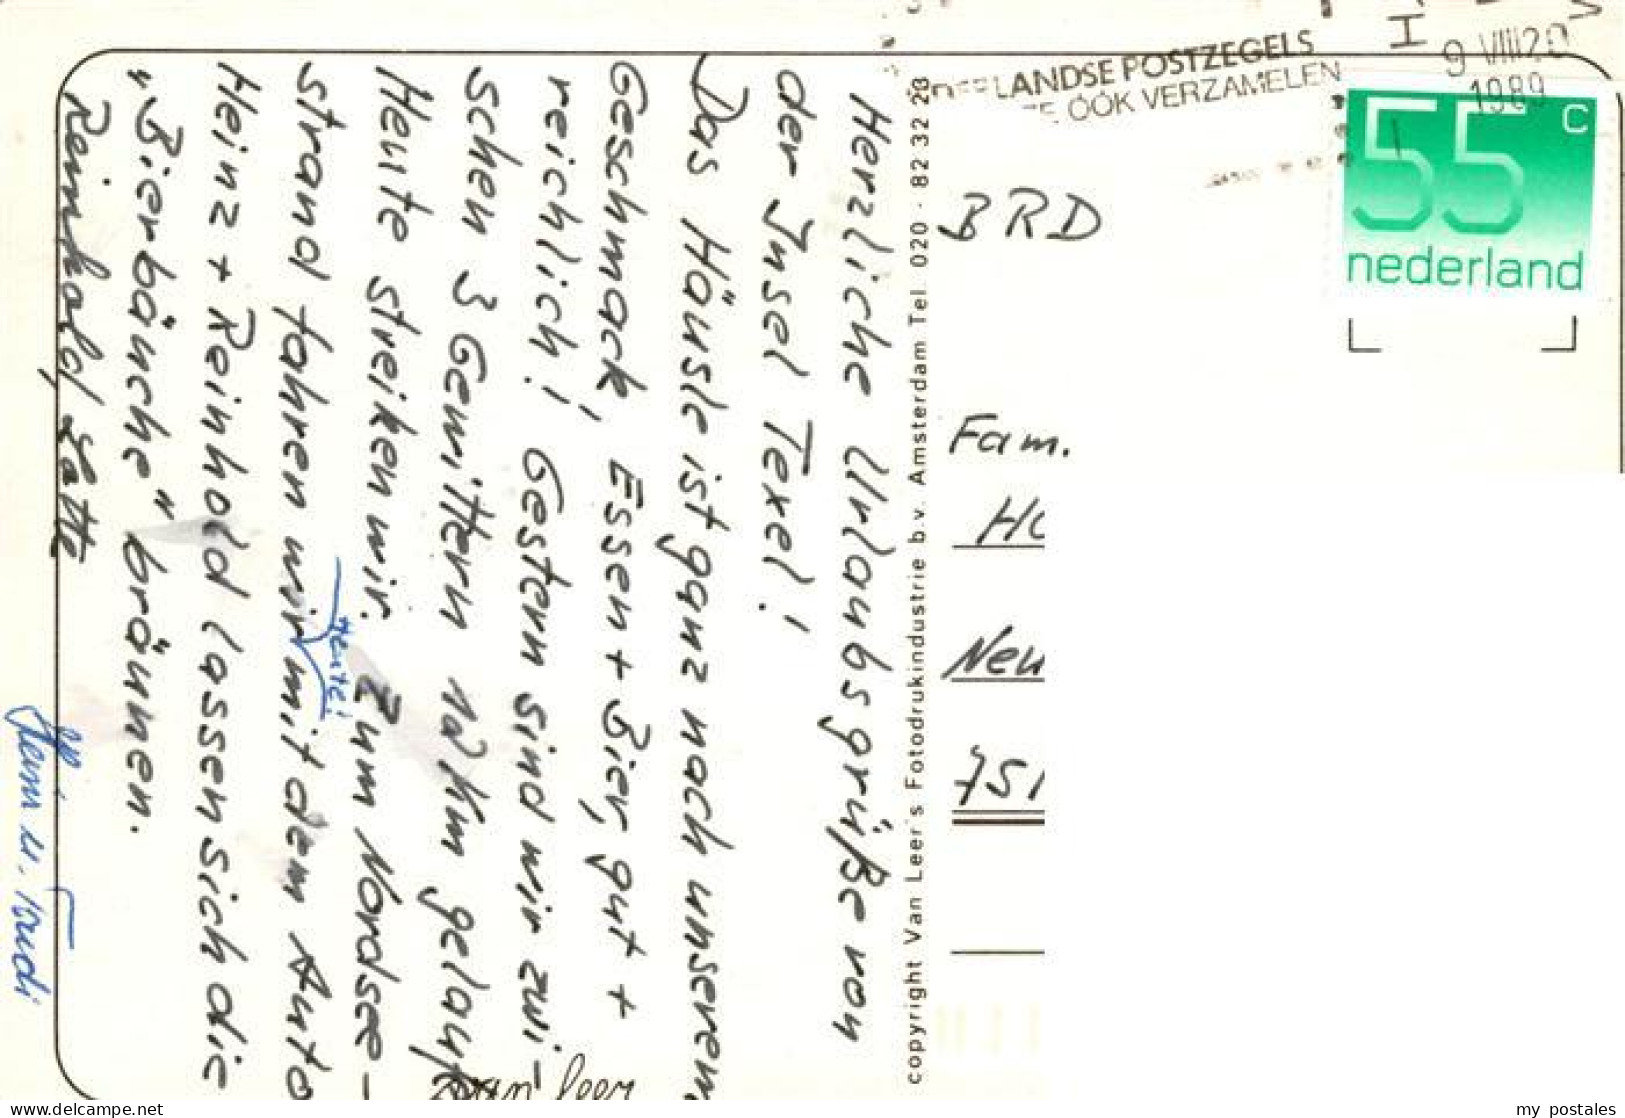 Herzliche Urlaubsgrüße von
der Insel Texel!
Das Häusle ist ganz nach unserem
Geschmack, Essen + Bier, gut +
reichlich! Gestern sind wir zwi-
schen 3 Gewittern 10 Km gelaufen
Heute streiken wir. Zum Nordsee-
Heute!
strand fahren wir mit dem Auto
Heinz + Reinhold lassen sich die
"Bierbäuche" bräunen.
Reinhold, Lotte
Heinz u. Trudi
van Leer
copyright Van Leer's Fotodrukindustrie b.v. Amsterdam Tel 020 - 82 32 28
LANDSE POSTZEGELS
ÓÓK VERZAMELEN
9 VIII 20
1989
55 c
nederland
BRD
Fam.
Neu
751
my postales